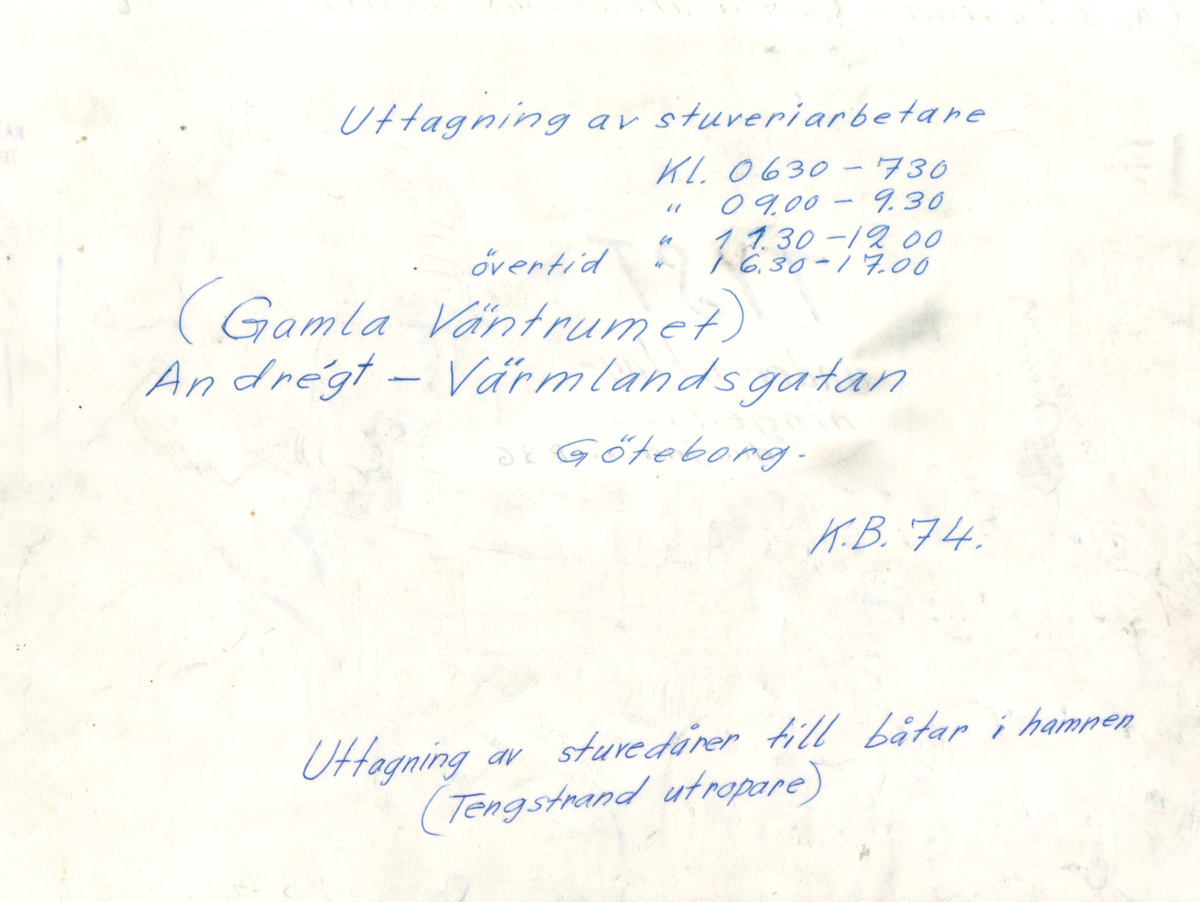 Uttagning av stuveriarbetare
Kl. 0630 - 730
" 09.00 - 9.30
" 11.30 - 12 00
övertid " 16.30 - 17.00
(Gamla Väntrumet)
Andrégt - Värmlandsgatan
Göteborg.
K.B. 74.
Uttagning av stuvedårer till båtar i hamnen
(Tengstrand utropare)